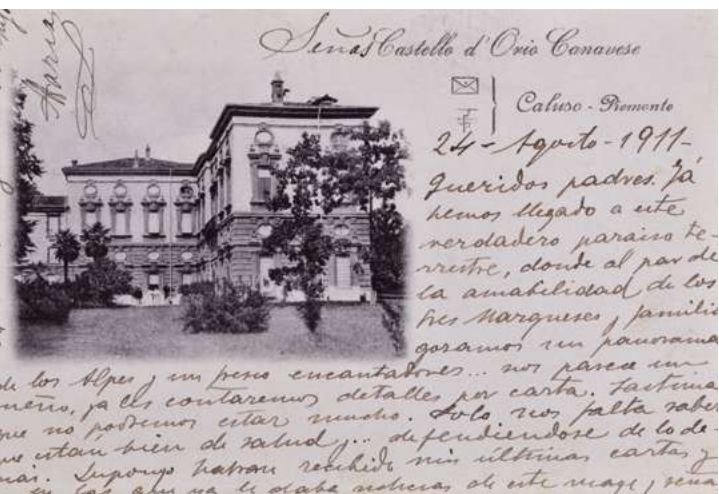 Señas Castello d'Orio Canavese
Caluso - Piemonte
24 - Agosto - 1911 -
Queridos padres. Ya
hemos llegado a este
verdadero paraiso te-
rrestre, donde al par de
la amabilidad de los
Sres Marqueses y familia
gozamos un panorama
de los Alpes y un fresco encantadores... nos parece un
sueño, ya les contaremos detalles por carta. Lastima
que no podremos estar mucho. Solo nos falta saber
que estan bien de salud y... defendiendose de lo de-
mas. Supongo habran recibido mis últimas cartas y
en las que ya le daba noticias de este viage, seña
Maria